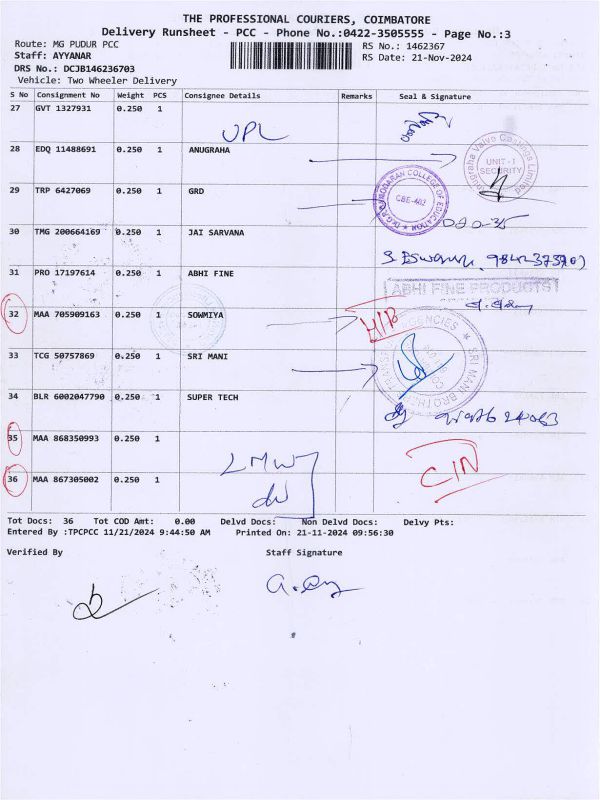 THE PROFESSIONAL COURIERS, COIMBATORE
Delivery Runsheet - PCC - Phone No.:0422-3505555 - Page No.:3
Route: MG PUDUR PCC
RS No.: 1462367
Staff: AYYANAR
RS Date: 21-Nov-2024
DRS No.: DCJB146236703
Vehicle: Two Wheeler Delivery
S No Consignment No Weight PCS Consignee Details Remarks Seal & Signature
27 GVT 1327931 0.250 1
UPL
28 EDQ 11488691 0.250 1 ANUGRAHA
Anugraha Valve Castings Limited
UNIT-I
SECURITY
29 TRP 6427069 0.250 1 GRD
COLLEGE OF EDUCATION
CBE-402
30 TMG 200664169 0.250 1 JAI SARVANA
31 PRO 17197614 0.250 1 ABHI FINE
ABHI FINE PRODUCTS
32 MAA 705909163 0.250 1 SOWMIYA
H/B
33 TCG 50757869 0.250 1 SRI MANI
SRI MANI BROTHERS
AGENCIES
34 BLR 6002047790 0.250 1 SUPER TECH
35 MAA 868350993 0.250 1
LMW
C/N
36 MAA 867305002 0.250 1
Tot Docs: 36 Tot COD Amt: 0.00 Delvd Docs: Non Delvd Docs: Delvy Pts:
Entered By :TPCPCC 11/21/2024 9:44:50 AM Printed On: 21-11-2024 09:56:30
Verified By Staff Signature